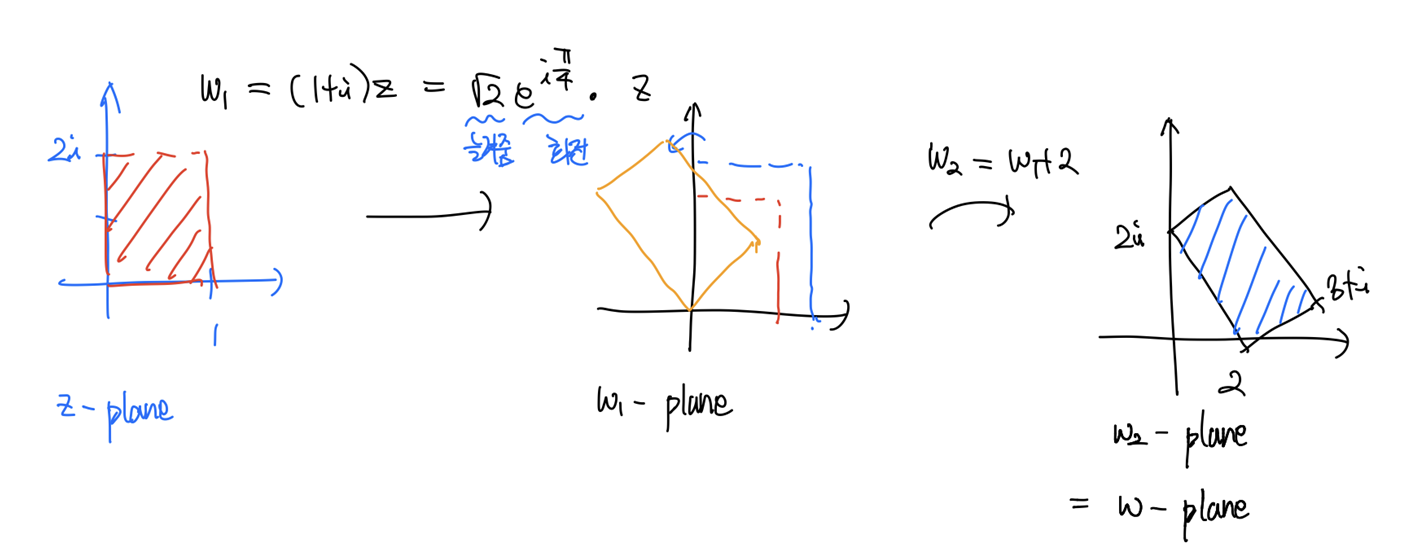 w₁ = (1+i)z = √2 e^{iπ/4} · z
늘려줌 회전
2i
1
z - plane
w₁ - plane
w₂ = w₁+2
2i
3+i
2
w₂ - plane
= w - plane